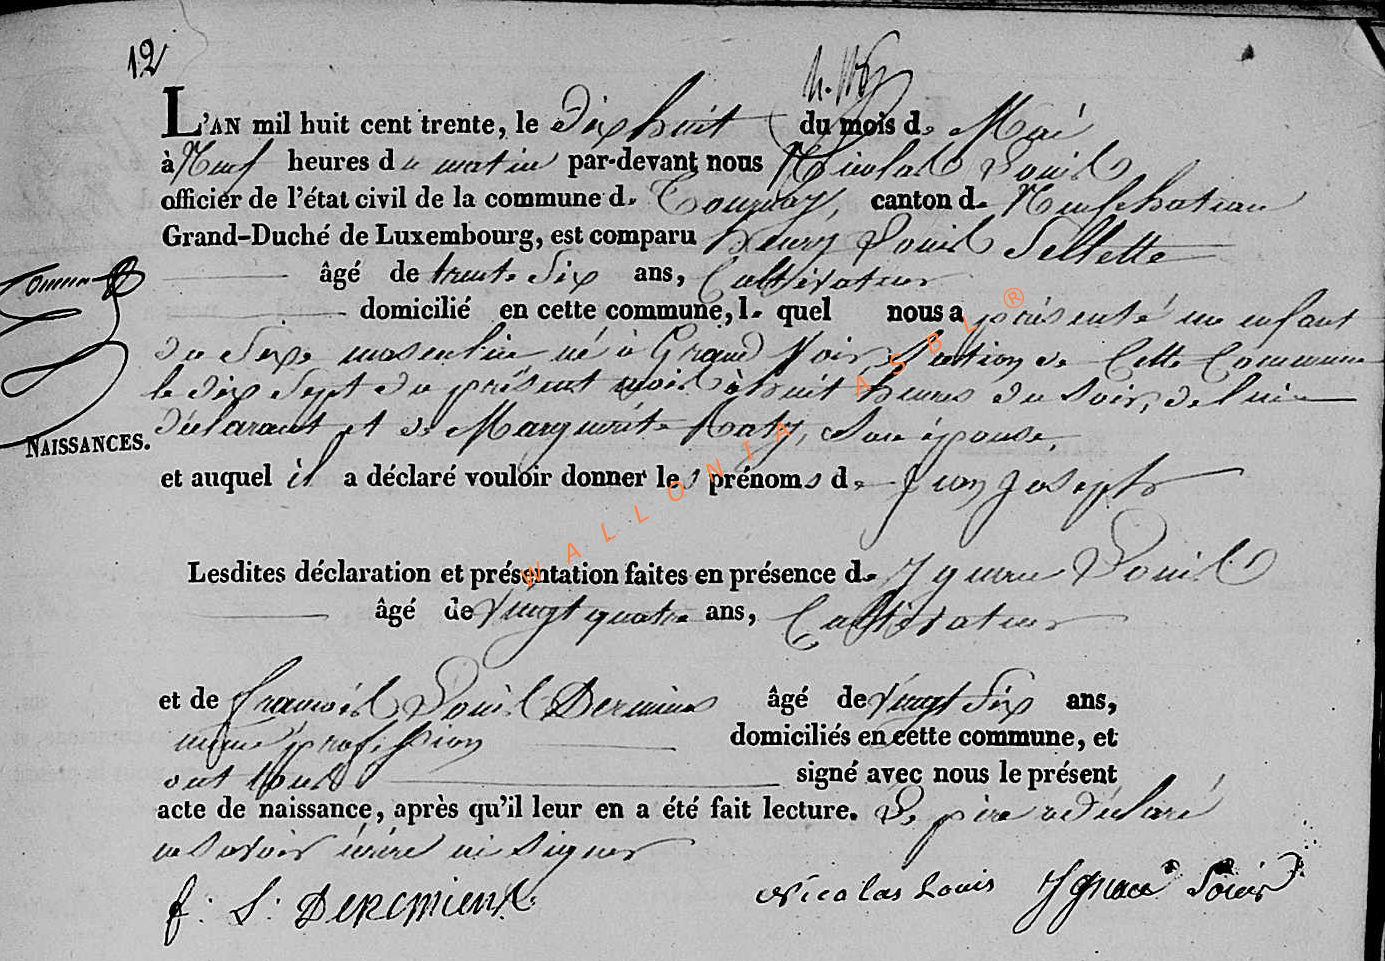 12
L'AN mil huit cent trente, le Dix huit du mois de Mai
à Neuf heures du matin par-devant nous Nicolas Louis
officier de l'état civil de la commune de Tournay, canton de Neufchateau
Grand-Duché de Luxembourg, est comparu henry Louis Sellette
âgé de trente Six ans, Cultivateur
domicilié en cette commune, le quel nous a présenté un enfant
du Sexe masculin né à Grand Voir Section de Cette Commune
le dix Sept du présent mois à huit heures du Soir, de lui
déclarant et de Marguerite Raty, Son épouse,
NAISSANCES.
et auquel il a déclaré vouloir donner les prénoms de Jean Joseph
Lesdites déclaration et présentation faites en présence de Ignace Louis
âgé de Vingt quatre ans, Cultivateur
et de françois Louis Dermience âgé de Vingt Six ans,
même profession domiciliés en cette commune, et
ont tous signé avec nous le présent
acte de naissance, après qu'il leur en a été fait lecture. Le père a déclaré
ne Savoir écrire ni Signer
f: L: Nicolas Louis Ignace Louis
WALLONIA ASBL ®